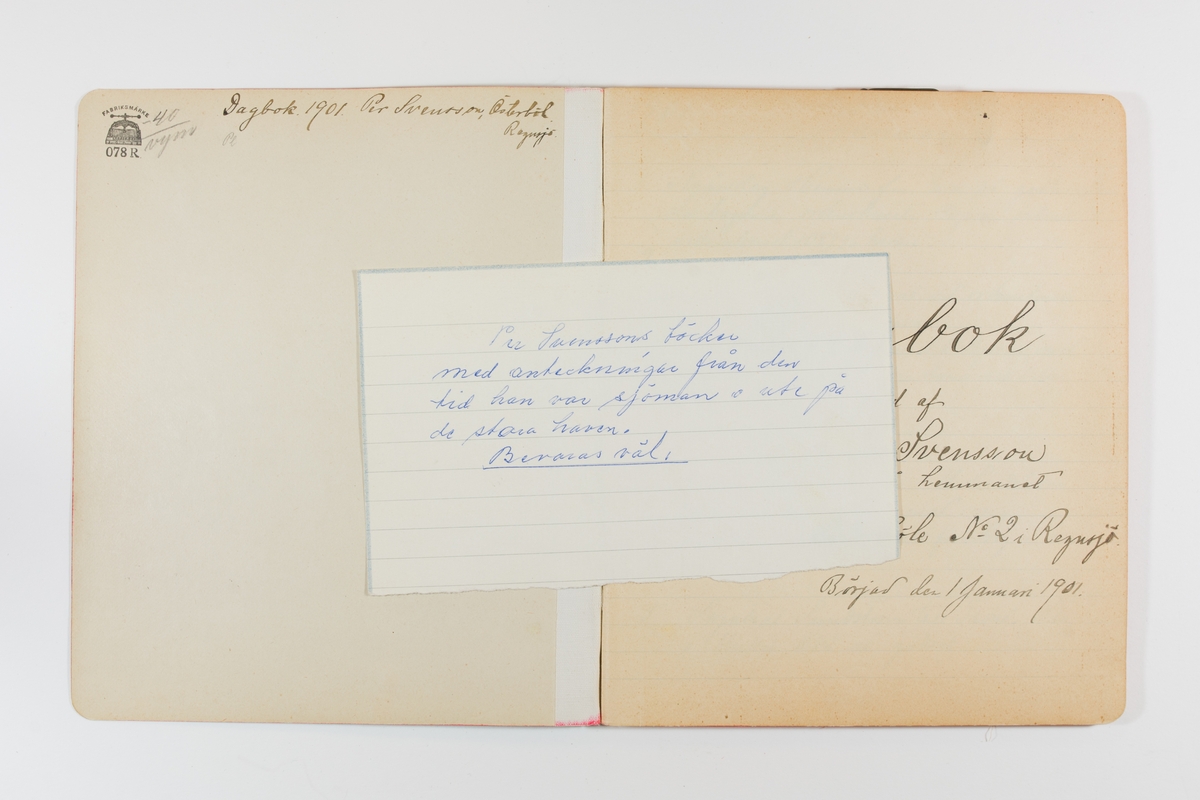 FABRIKSMÄRKE
078 R
-40
Dagbok 1901. Per Svensson, Österböl
Regnsjö.
Per Svenssons böcker
med anteckningar från den
tid han var sjöman o ute på
de stora haven.
Bevaras väl.
bok
af
Svensson
hemmanet
öle No 2 i Regnsjö.
Börjad den 1 Januari 1901.